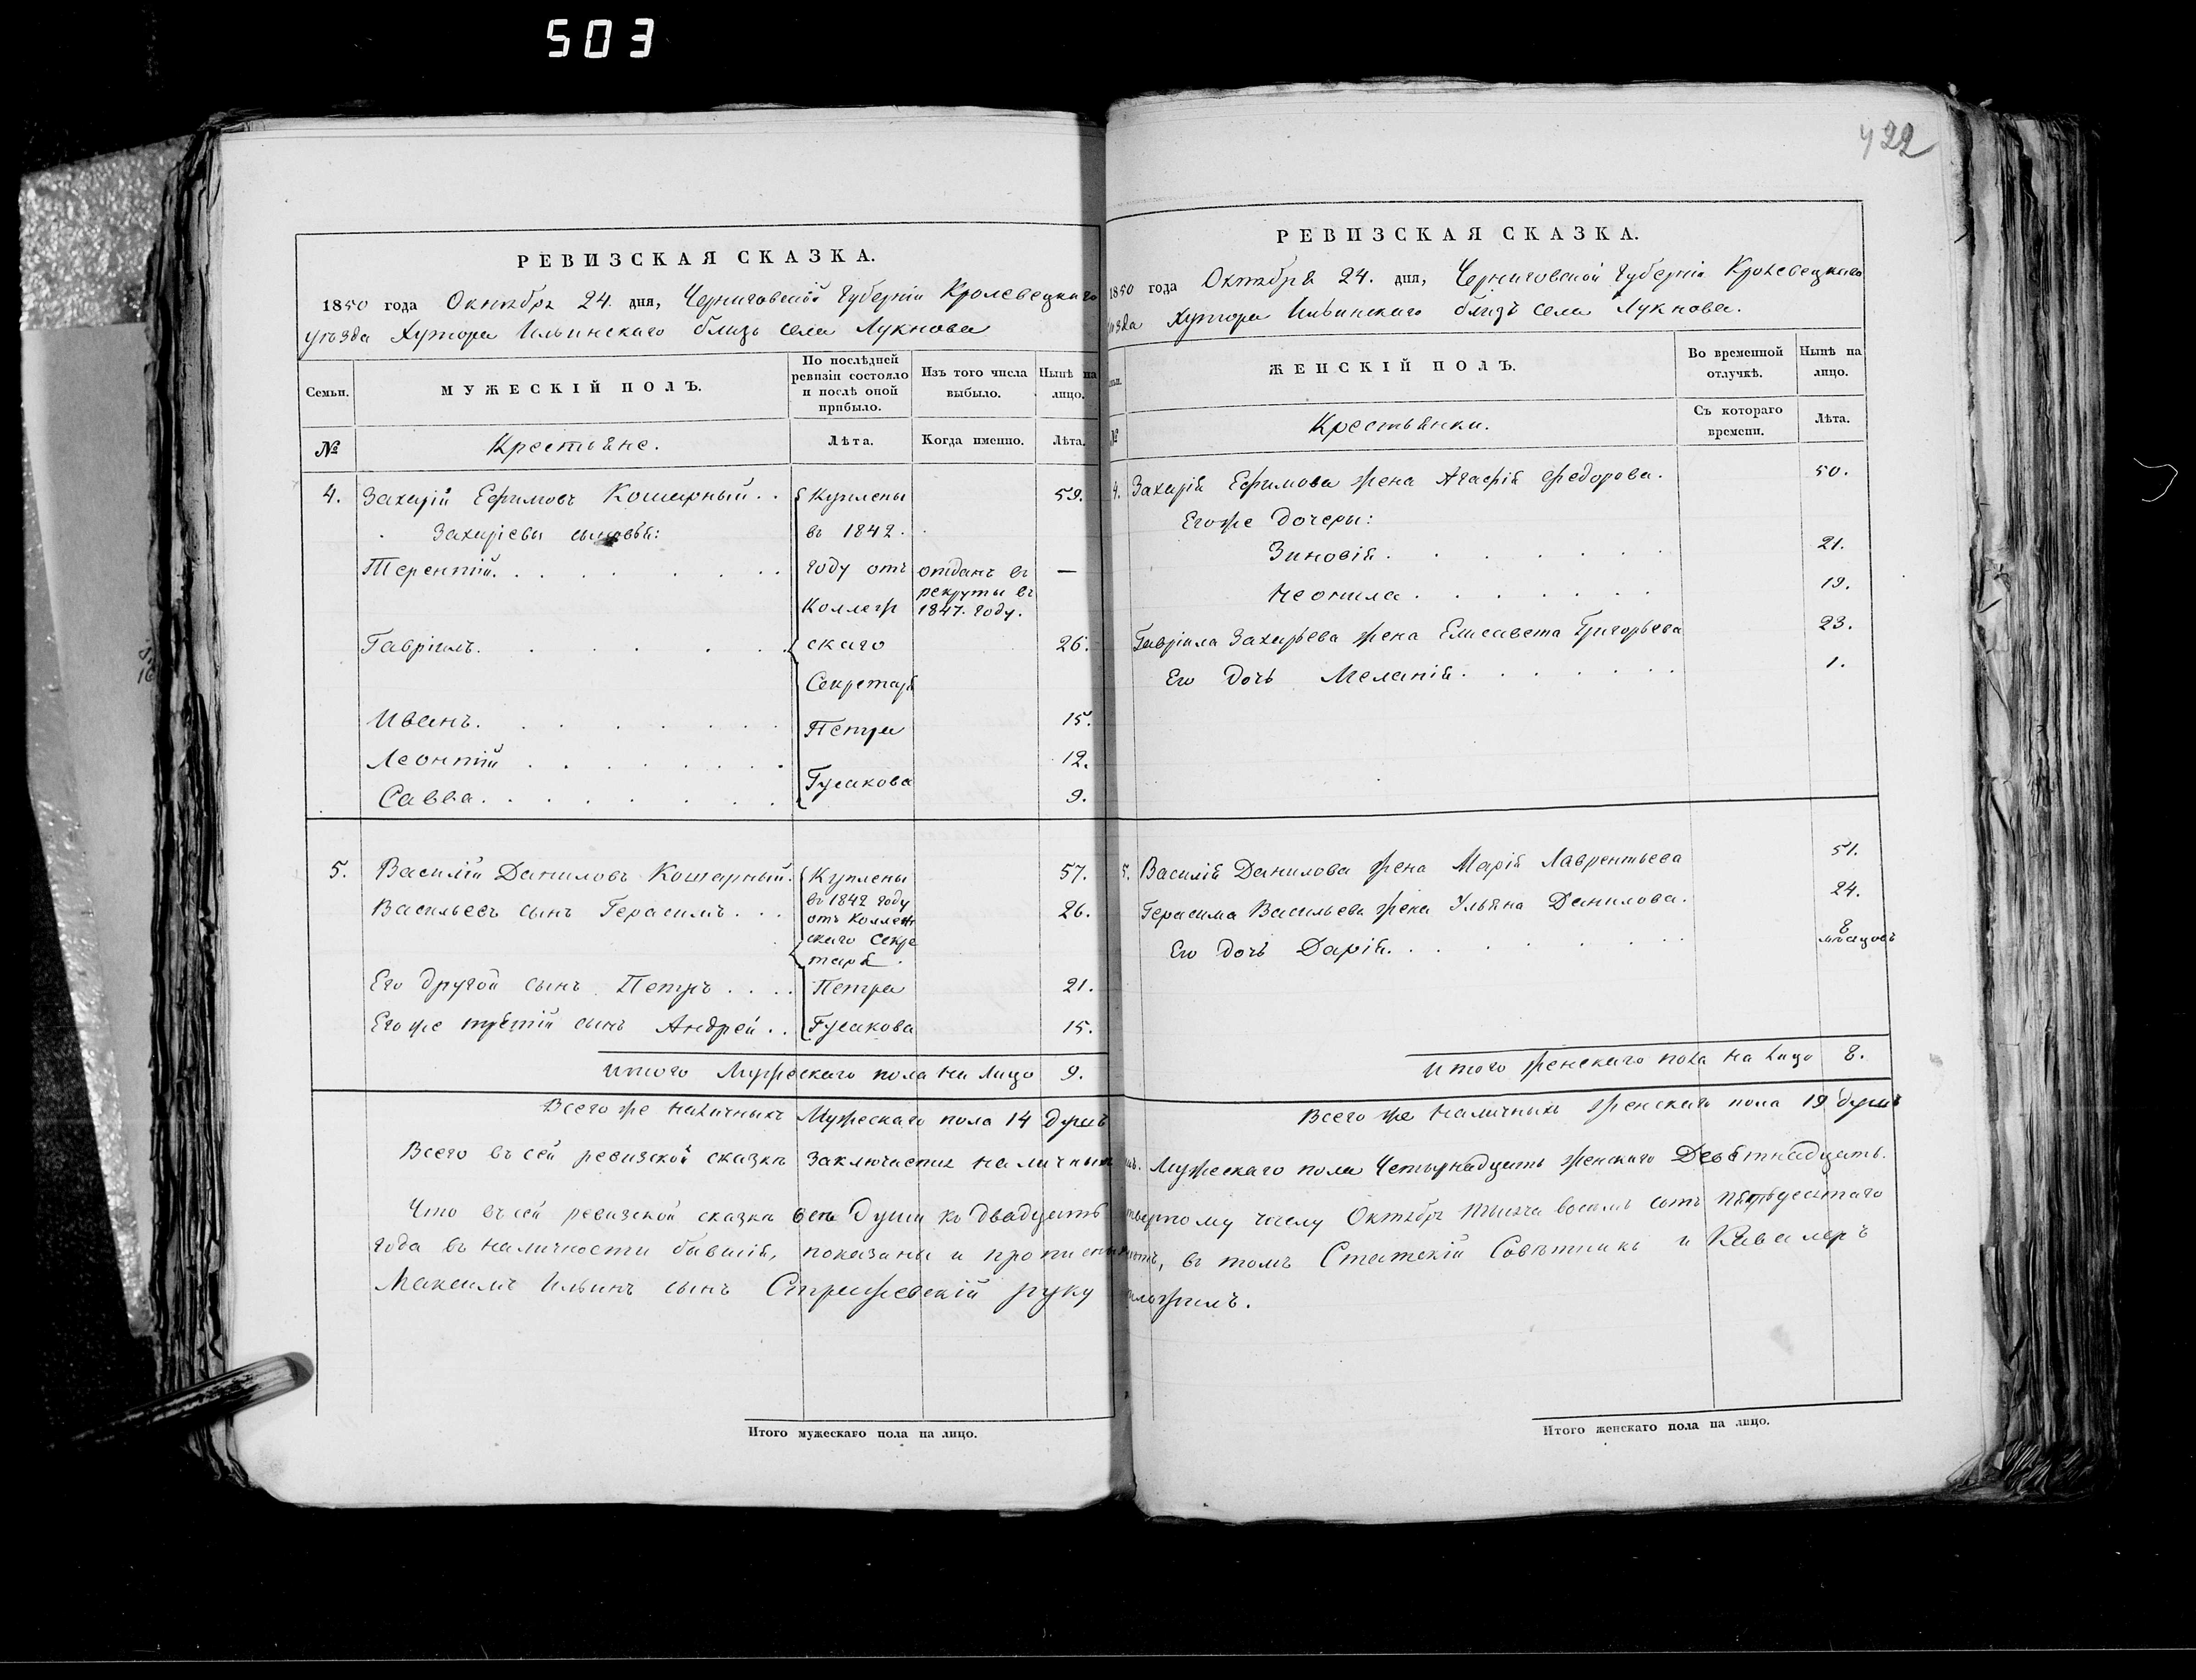 503
422
РЕВИЗСКАЯ СКАЗКА.
1850 года Октября 24. дня, Черниговской Губерніи Кролевецкаго
уѣзда Хутора Ильинскаго близь села Лукнова
Семьи.
МУЖЕСКІЙ ПОЛЪ.
По послѣдней ревизіи состояло и послѣ оной прибыло.
Изъ того числа выбыло.
Нынѣ на лицо.
№
Крестьяне.
Лѣта.
Когда именно.
Лѣта.
4. Захарій Ефимовъ Кошарный . . Куплены 59.
Захаріевы сыновья: въ 1842.
Терентій. . . . . . . году отъ отданъ въ —
рекруты въ
Коллеж 1847. году.
Гавріилъ. . . . . . скаго 26.
Секретаря
Иванъ. . . . . . Петра 15.
Леонтій . . . . . . . 12.
Гусакова
Савва. . . . . . . 9.
5. Василій Даниловъ Кошарный. Куплены 57.
въ 1842 году
Васильевъ сынъ Герасимъ . . . отъ Коллеж 26.
скаго Секре
таря.
Его другой сынъ Петръ . . . . Петра 21.
Егоже третій сынъ Андрей . . Гусакова 15.
Итого Мужескаго пола на лицо 9.
Всего же наличныхъ Мужескаго пола 14 душъ
РЕВИЗСКАЯ СКАЗКА.
1850 года Октября 24. дня, Черниговской Губерніи Кролевецкаго
уѣзда Хутора Ильинскаго близъ села Лукнова.
ЖЕНСКІЙ ПОЛЪ.
Во временной отлучкѣ.
Нынѣ на лицо.
№
Крестьянки.
Съ котораго времени.
Лѣта.
4. Захарія Ефимова жена Агафія Федорова. 50.
Егоже дочери:
Зиновія . . . . . . 21.
Неонила . . . . . . . 19.
Гавріила Захарьева жена Елисавета Григорьева 23.
Его дочь Меланія . . . . . . 1.
5. Василія Данилова жена Марія Лаврентьева 51.
Герасима Васильева жена Ульяна Данилова. 24.
Его дочь Дарія. . . . . . . 8 мѣсяцовъ
Итого женскаго пола на лицо 8.
Всего же наличныхъ женскаго пола 19 душъ
Всего въ сей ревизской сказкѣ заключается наличныхъ Мужескаго пола Четырнадцать женскаго Девятнадцать.
Что въ сей ревизской сказкѣ всѣ Души къ двадцать числу Октября тысяча восемь сотъ пятьдесятаго
года въ наличности бывшія, показаны и прописки нѣтъ, въ томъ Статскій Совѣтникъ и Кавалеръ
Максимъ Ильинъ сынъ Стрижевскій руку приложилъ.
Итого мужескаго пола на лицо.
Итого женскаго пола на лицо.